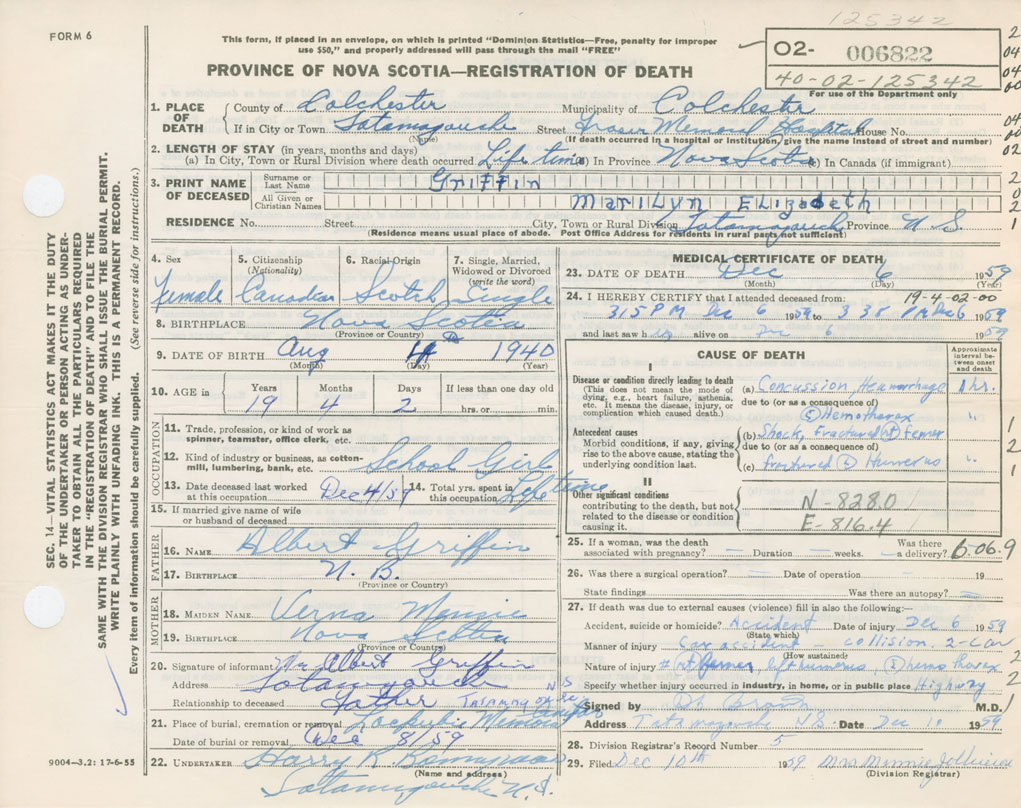 125342
FORM 6
This form, if placed in an envelope, on which is printed "Dominion Statistics—Free, penalty for improper
use $50," and properly addressed will pass through the mail "FREE"
02- 006822
40-02-125342
For use of the Department only
PROVINCE OF NOVA SCOTIA—REGISTRATION OF DEATH
1. PLACE OF DEATH
County of Colchester Municipality of Colchester
If in City or Town Tatamagouche Street Fraser Memorial Hospital House No.
(Name) (If death occurred in a hospital or institution, give the name instead of street and number)
2. LENGTH OF STAY (in years, months and days)
(a) In City, Town or Rural Division where death occurred Life time In Province Nova Scotia (c) In Canada (if immigrant)
3. PRINT NAME OF DECEASED
Surname or Last Name Griffin
All Given or Christian Names Marilyn Elizabeth
RESIDENCE No. Street City, Town or Rural Division Tatamagouche Province N S
(Residence means usual place of abode. Post Office Address for residents in rural parts not sufficient)
4. Sex Female
5. Citizenship (Nationality) Canadian
6. Racial Origin Scotch
7. Single, Married, Widowed or Divorced (write the word) Single
8. BIRTHPLACE Nova Scotia
(Province or Country)
9. DATE OF BIRTH Aug 4th 1940
(Month) (Day) (Year)
10. AGE in Years Months Days If less than one day old
19 4 2 hrs. or min.
OCCUPATION
11. Trade, profession, or kind of work as spinner, teamster, office clerk, etc.
12. Kind of industry or business, as cotton-mill, lumbering, bank, etc. School Girl
13. Date deceased last worked at this occupation Dec 4/59
14. Total yrs. spent in this occupation Life time
15. If married give name of wife or husband of deceased
FATHER
16. NAME Albert Griffin
17. BIRTHPLACE N. B.
(Province or Country)
MOTHER
18. MAIDEN NAME Verna
19. BIRTHPLACE Nova Scotia
(Province or Country)
20. Signature of informant Mr Albert Griffin
Address Tatamagouche N S
Relationship to deceased Father
21. Place of burial, cremation or removal
Date of burial or removal Dec 8/59
22. UNDERTAKER Harry K
(Name and address)
Tatamagouche N. S.
MEDICAL CERTIFICATE OF DEATH
23. DATE OF DEATH Dec 6 1959
(Month) (Day) (Year)
24. I HEREBY CERTIFY that I attended deceased from: 19-4-02-00
3 15 PM Dec 6 1959 to 3 38 PM Dec 6 1959
and last saw h er alive on Dec 6 1959
CAUSE OF DEATH
Approximate interval between onset and death
I
Disease or condition directly leading to death
(This does not mean the mode of dying, e.g., heart failure, asthenia, etc. It means the disease, injury, or complication which caused death.)
(a) Concussion, Hemorrhage 1 hr.
due to (or as a consequence of)
Hemothorax "
Antecedent causes
Morbid conditions, if any, giving rise to the above cause, stating the underlying condition last.
(b) Shock, Fractured Rt femur
due to (or as a consequence of)
(c) Fractured L Humerus "
II
Other significant conditions
contributing to the death, but not related to the disease or condition causing it.
N-828.0
E-816.4
25. If a woman, was the death associated with pregnancy? — Duration — weeks. Was there a delivery?
26. Was there a surgical operation? — Date of operation — 19
State findings Was there an autopsy? —
27. If death was due to external causes (violence) fill in also the following:—
Accident, suicide or homicide? Accident Date of injury Dec 6 1959
(State which)
Manner of injury Car accident collision. 2-car
(How sustained)
Nature of injury # rt femur, left humerus, hemothorax
Specify whether injury occurred in industry, in home, or in public place Highway
Signed by M.D.
Address Tatamagouche NS Date Dec 10 1959
28. Division Registrar's Record Number 5
29. Filed Dec 10th 1959 Mrs Minnie
(Division Registrar)
SEC. 14—VITAL STATISTICS ACT MAKES IT THE DUTY
OF THE UNDERTAKER OR PERSON ACTING AS UNDER-
TAKER TO OBTAIN ALL THE PARTICULARS REQUIRED
IN THE "REGISTRATION OF DEATH" AND TO FILE THE
SAME WITH THE DIVISION REGISTRAR WHO SHALL ISSUE THE BURIAL PERMIT.
WRITE PLAINLY WITH UNFADING INK. THIS IS A PERMANENT RECORD.
Every item of information should be carefully supplied. (See reverse side for instructions.)
9004—3.2: 17-6-55